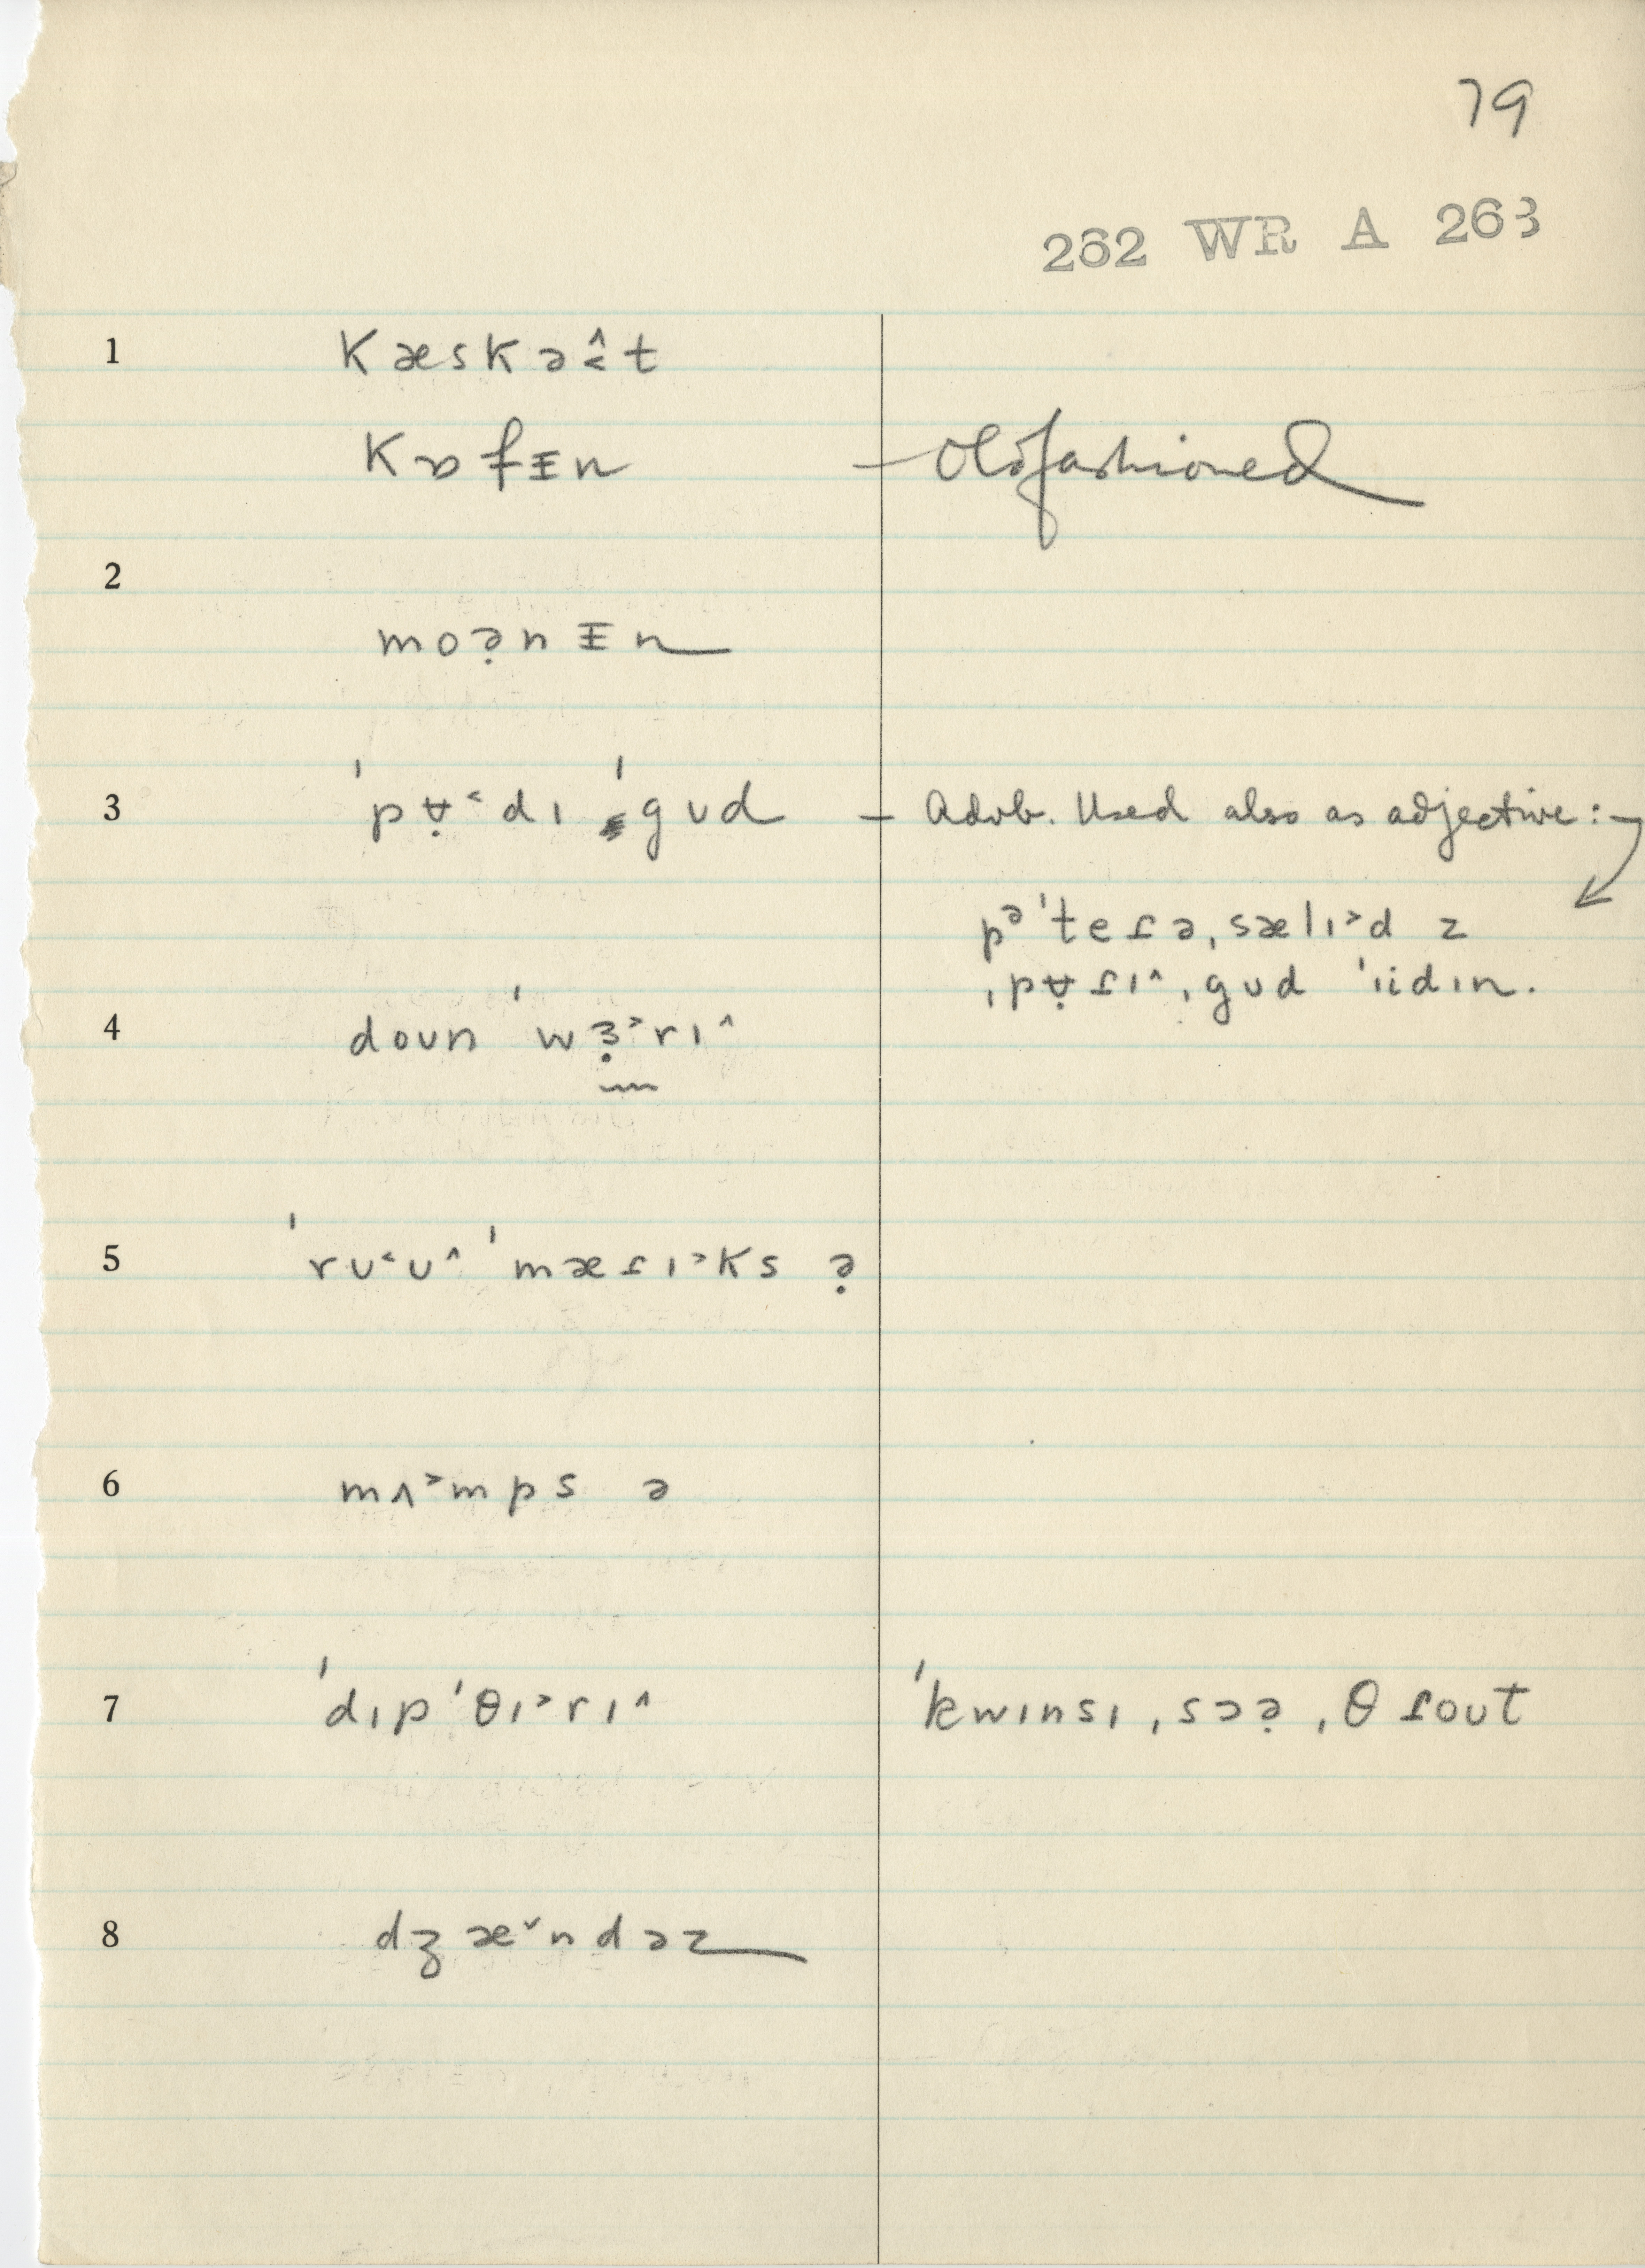 79
262 WR A 263
1 kæskə̭̂t
kɒfᵻn – Oldfashioned
2
moə̣nᵻn
3 ˈpɐ̣˂dɪ ˈgʊd – Advb. Used also as adjective:
pᵊˈteɾə ˌsælɪ˃d z
ˌpɐ̣ɾɪ^ ˌgʊd ˈɪidɪn.
4 doʊn ˈwɜ̣˃rɪ^
5 ˈrʊ˂ʊ^ ˈmæɾɪ˃ks ə̣
6 mʌ˃mps ə
7 ˈdɪpˈθɪ˃rɪ^ ˈkwɪnsɪ ˌsɔə̣ ˌθɾoʊt
8 dʒæ˅ndəz